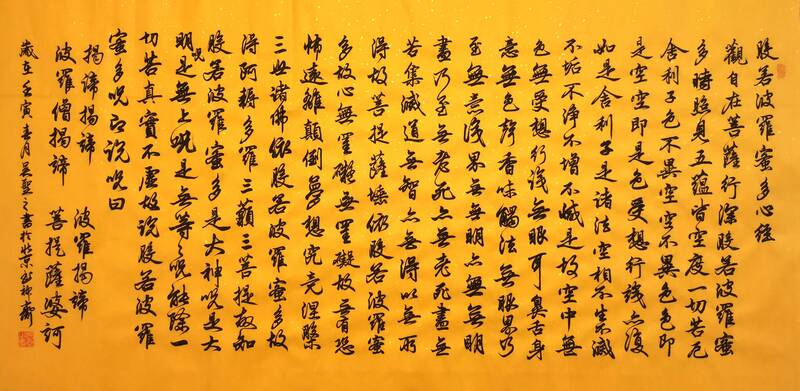 般若波羅蜜多心經
觀自在菩薩行深般若波羅蜜
多時照見五蘊皆空度一切苦厄
舍利子色不異空空不異色色即
是空空即是色受想行識亦復
如是舍利子是諸法空相不生不滅
不垢不淨不增不減是故空中無
色無受想行識無眼耳鼻舌身
意無色聲香味觸法無眼界乃
至無意識界無無明亦無無明
盡乃至無老死亦無老死盡無
苦集滅道無智亦無得以無所
得故菩提薩埵依般若波羅蜜
多故心無罣礙無罣礙故無有恐
怖遠離顛倒夢想究竟涅槃
三世諸佛依般若波羅蜜多故
得阿耨多羅三藐三菩提故知
般若波羅蜜多是大神咒是大
明咒是無上咒是無等々咒能除一
切苦真實不虛故說般若波羅
蜜多咒即說咒曰
揭諦揭諦 波羅揭諦
波羅僧揭諦 菩提薩婆訶
歲在壬寅春月吳聖之書於北京齋